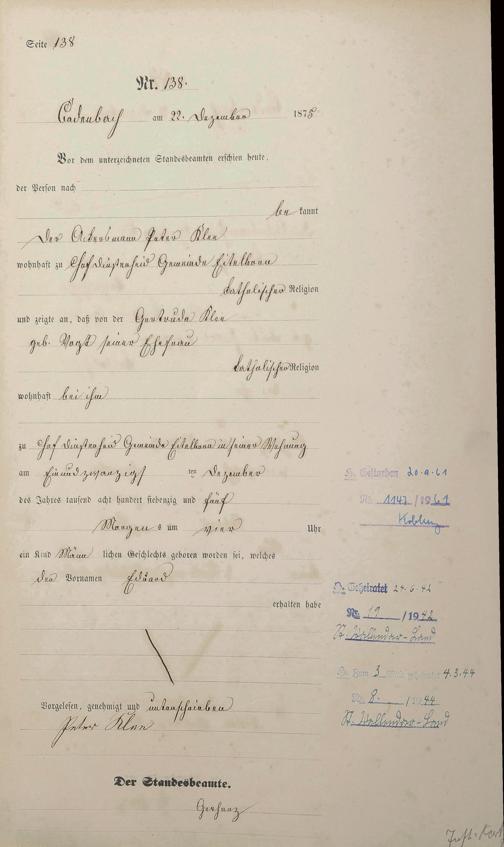 Seite 138
Nr. 138.
Cadenbach am 22. Dezember 1875
Vor dem unterzeichneten Standesbeamten erschien heute,
der Person nach
be kannt
Der Ackersmann Peter Klee
wohnhaft zu Hof Gemeinde Eitelborn
katholischer Religion
und zeigte an, daß von der Gertrude Klee
geb. Vogt seiner Ehefrau
katholischer Religion
wohnhaft bei ihm
zu Hof Gemeinde Eitelborn in seiner Wohnung
am Einundzwanzigsten Dezember
des Jahres tausend acht hundert siebenzig und fünf
Morgens um vier Uhr
ein Kind Männ lichen Geschlechts geboren worden sei, welches
den Vornamen Eduard
erhalten habe
Vorgelesen, genehmigt und unterschrieben
Peter Klee
Der Standesbeamte.
Gestorben 20.9.61
Nr. 1147 / 1961
Koblenz
Geheiratet 24.6.42
Nr. 19 / 1942
3 4.3.44
Nr. 8 / 1944